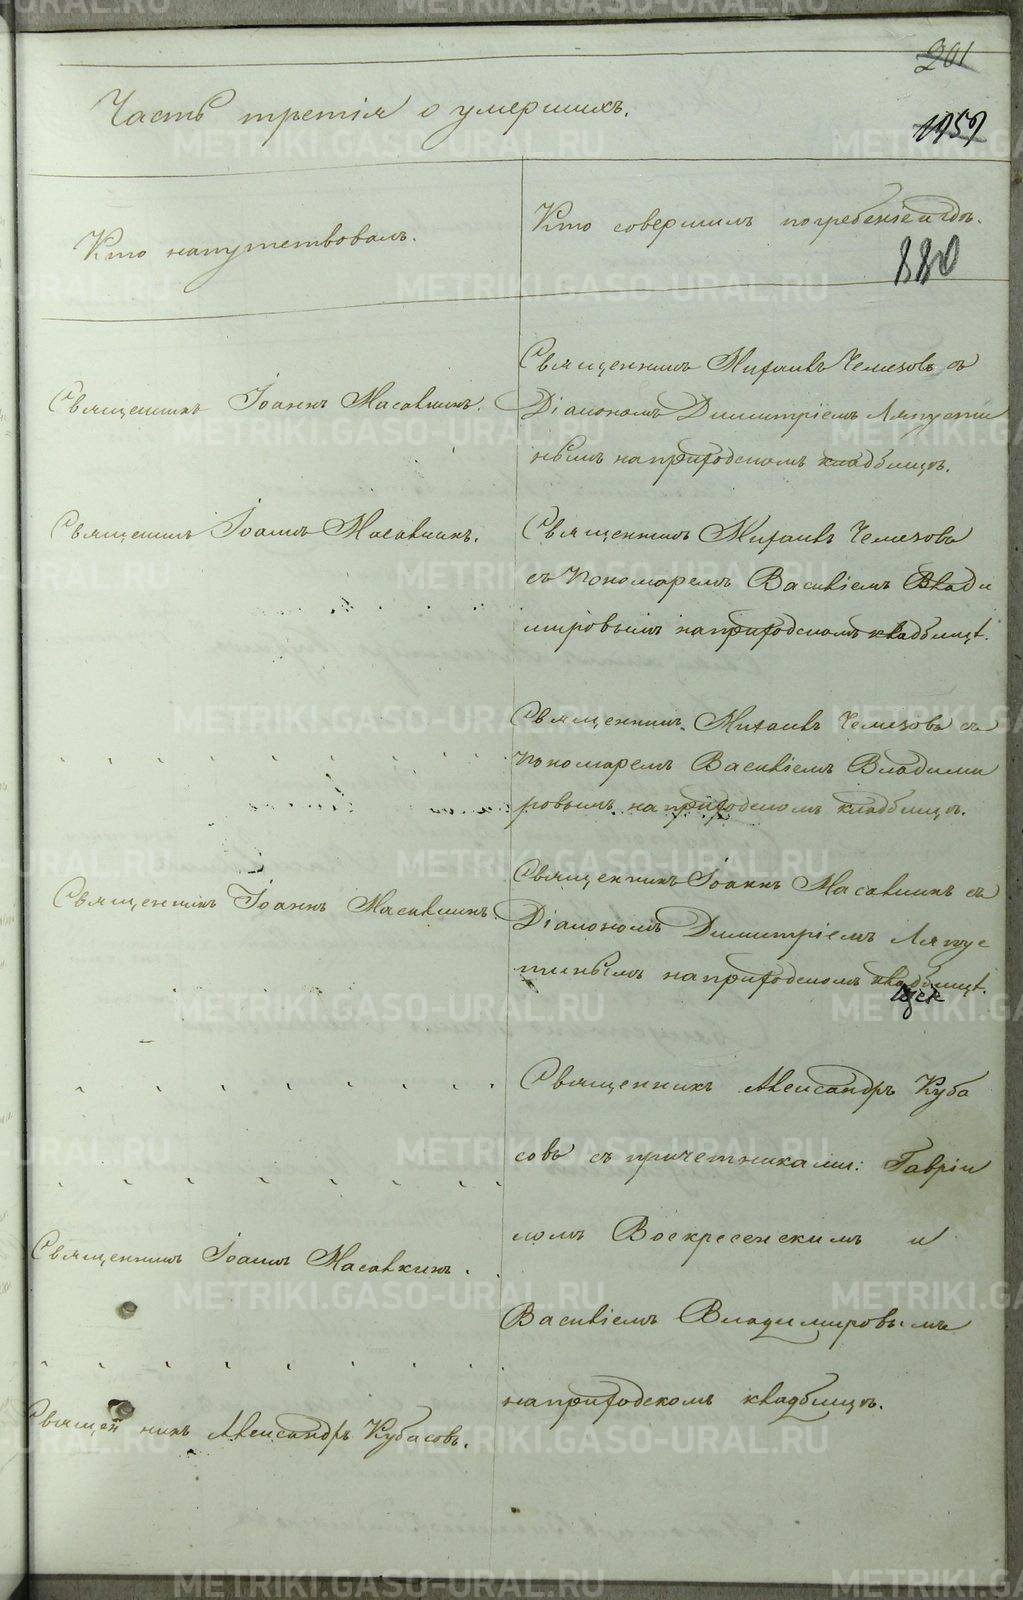 201
Часть третія о умершихъ.
1959
Кто напутствовалъ.
Кто совершилъ погребеніе и гдѣ.
880
Священникъ Іоаннъ Масалкинъ.
Священникъ Михаилъ Чемезовъ съ
Діакономъ Димитріемъ Ляпусти
нымъ на приходскомъ кладбищѣ.
Священникъ Іоаннъ Масалкинъ.
Священникъ Михаилъ Чемезовъ
съ Пономаремъ Василіемъ Влади
мировымъ на приходскомъ кладбищѣ.
Священникъ Михаилъ Чемезовъ съ
Пономаремъ Василіемъ Владими
ровымъ на приходскомъ кладбищѣ.
Священникъ Іоаннъ Масалкинъ.
Священникъ Іоаннъ Масалкинъ съ
Діакономъ Димитріемъ Ляпус
тинымъ на приходскомъ кладбищѣ.
Священникъ Александръ Куба
совъ съ причетниками: Гаврiи
ломъ Воскресенскимъ и
Василіемъ Владимировымъ
на приходскомъ кладбищѣ.
Священникъ Іоаннъ Масалкинъ.
Священникъ Александръ Кубасовъ.
METRIKI.GASO-URAL.RU